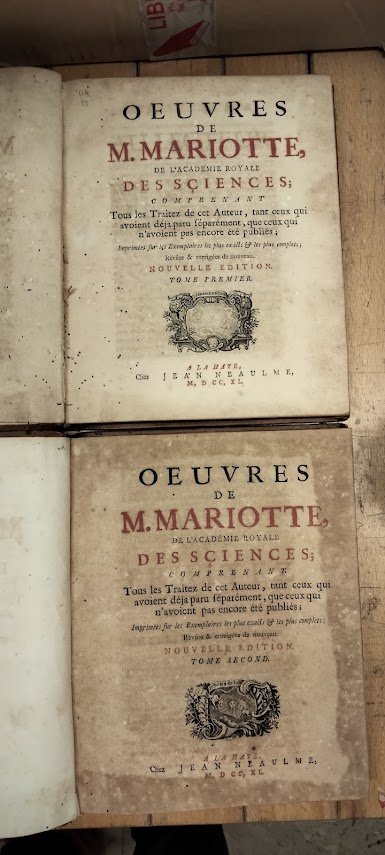 LIB
OEUVRES
DE
M. MARIOTTE,
DE L'ACADEMIE ROYALE
DES SÇIENCES;
COMPRENANT
Tous les Traitez de cet Auteur, tant ceux qui
avoient déja paru séparément, que ceux qui
n'avoient pas encore été publiés;
Imprimées sur les Exemplaires les plus exacts & les plus complets;
Revûes & corrigées de nouveau.
NOUVELLE EDITION.
TOME PREMIER.
A LA HAYE,
Chez JEAN NEAULME,
M. D CC, XL.
OEUVRES
DE
M. MARIOTTE,
DE L'ACADEMIE ROYALE
DES SCIENCES;
COMPRENANT
Tous les Traitez de cet Auteur, tant ceux qui
avoient déja paru séparément, que ceux qui
n'avoient pas encore été publiés:
Imprimées sur les Exemplaires les plus exacts & les plus complets;
Revûes & corrigées de nouveau.
NOUVELLE EDITION.
TOME SECOND.
A LA HAYE,
Chez JEAN NEAULME,
M. D CC, XL.